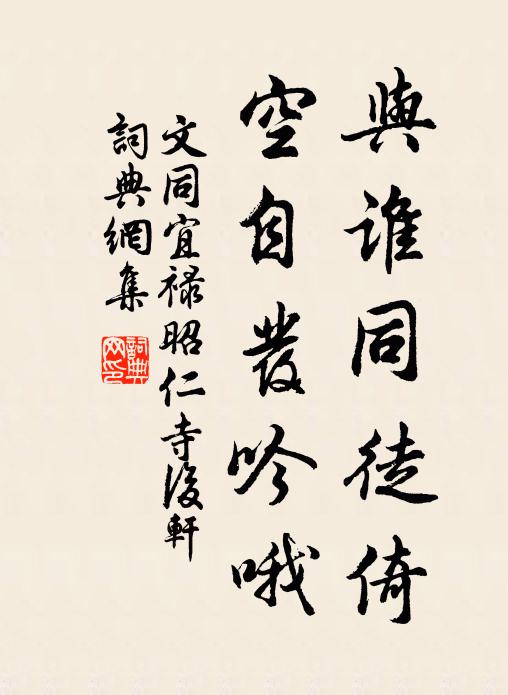 與誰同徒倚
空自發吟哦
文同宜禄昭仁寺後軒
詞典網集
詞典
网印